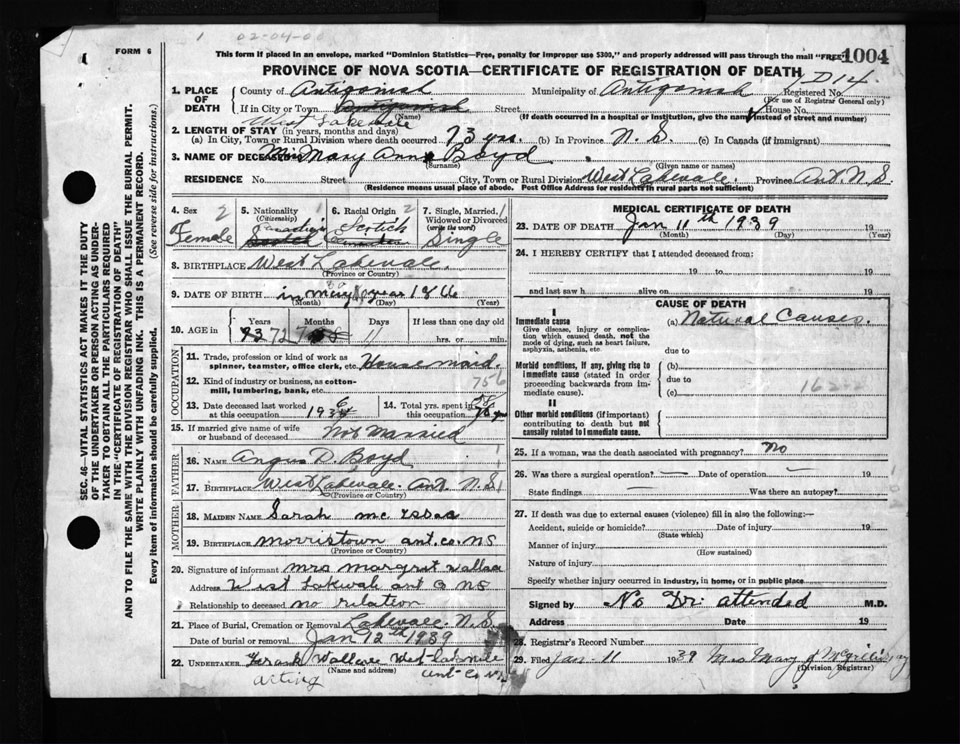 1 02-04-0
FORM 6
This form if placed in an envelope, marked "Dominion Statistics—Free, penalty for improper use $300," and properly addressed will pass through the mail "FREE"
1004
PROVINCE OF NOVA SCOTIA—CERTIFICATE OF REGISTRATION OF DEATH
D 14
1. PLACE OF DEATH
County of Antigonish Municipality of Antigonish Registered No.
(For use of Registrar General only)
If in City or Town Antigonish Street House No.
(Name) (If death occurred in a hospital or institution, give the name instead of street and number)
West Lakevale
2. LENGTH OF STAY (in years, months and days)
(a) In City, Town or Rural Division where death occurred 73 yrs. (b) In Province N. S. (c) In Canada (if immigrant)
3. NAME OF DECEASED Miss Mary Ann Boyd
(Surname) (Given name or names)
RESIDENCE No. Street City, Town or Rural Division West Lakevale. Province Ant. N S.
(Residence means usual place of abode. Post Office Address for residents in rural parts not sufficient)
4. Sex 2 Female
5. Nationality (Citizenship) 1 Canadian
6. Racial Origin 2 Scotch
7. Single, Married, Widowed or Divorced (write the word) 1 Single
8. BIRTHPLACE West Lakevale.
(Province or Country)
9. DATE OF BIRTH in May year 1866
(Month) (Day) (Year)
10. AGE in Years Months Days If less than one day
72 7 11 hrs. or min.
OCCUPATION
11. Trade, profession or kind of work as spinner, teamster, office clerk, etc. House maid.
12. Kind of industry or business, as cotton-mill, lumbering, bank, etc. 756
13. Date deceased last worked at this occupation 193
14. Total yrs. spent in this occupation
15. If married give name of wife or husband of deceased Not Married
FATHER
16. NAME Angus D. Boyd
17. BIRTHPLACE West Lakevale. Ant. N. S.
(Province or Country)
MOTHER
18. MAIDEN NAME Sarah mc Issac
19. BIRTHPLACE Morristown ant. co. NS
(Province or Country)
20. Signature of informant mrs margret wallace
Address West Lakvale ant Co NS
Relationship to deceased no relation
21. Place of Burial, Cremation or Removal Lakevale. N. S.
Date of burial or removal Jan 12th 1939
22. UNDERTAKER Frank Wallace West Lakevale
(Name and address) ant Co NS
acting
MEDICAL CERTIFICATE OF DEATH
23. DATE OF DEATH Jan 11th 1939 19
(Month) (Day) (Year)
24. I HEREBY CERTIFY that I attended deceased from:
19 to 19
and last saw h alive on 19
CAUSE OF DEATH
I
Immediate cause (a) Natural Causes.
Give disease, injury or complication which caused death, not the mode of dying, such as heart failure, asphyxia, asthenia, etc. due to
Morbid conditions, if any, giving rise to immediate cause (stated in order proceeding backwards from immediate cause)
(b)
due to
162-2
(c)
II
Other morbid conditions (if important) contributing to death but not causally related to immediate cause.
25. If a woman, was the death associated with pregnancy? No
26. Was there a surgical operation? — Date of operation — 19
State findings — Was there an autopsy?
27. If death was due to external causes (violence) fill in also the following:—
Accident, suicide or homicide? Date of injury 19
(State which)
Manner of injury
(How sustained)
Nature of injury
Specify whether injury occurred in industry, in home, or in public place
Signed by No Dr. attended M.D.
Address Date 19
28. Registrar's Record Number
29. Filed Jan - 11 1939 Mrs Mary J McGillivray
(Division Registrar)
SEC. 46—VITAL STATISTICS ACT MAKES IT THE DUTY
OF THE UNDERTAKER OR PERSON ACTING AS UNDER-
TAKER TO OBTAIN ALL THE PARTICULARS REQUIRED
IN THE "CERTIFICATE OF REGISTRATION OF DEATH" AND
TO FILE THE SAME WITH THE DIVISION REGISTRAR WHO SHALL ISSUE THE BURIAL PERMIT.
WRITE PLAINLY WITH UNFADING INK. THIS IS A PERMANENT RECORD.
Every item of information should be carefully supplied. (See reverse side for instructions.)